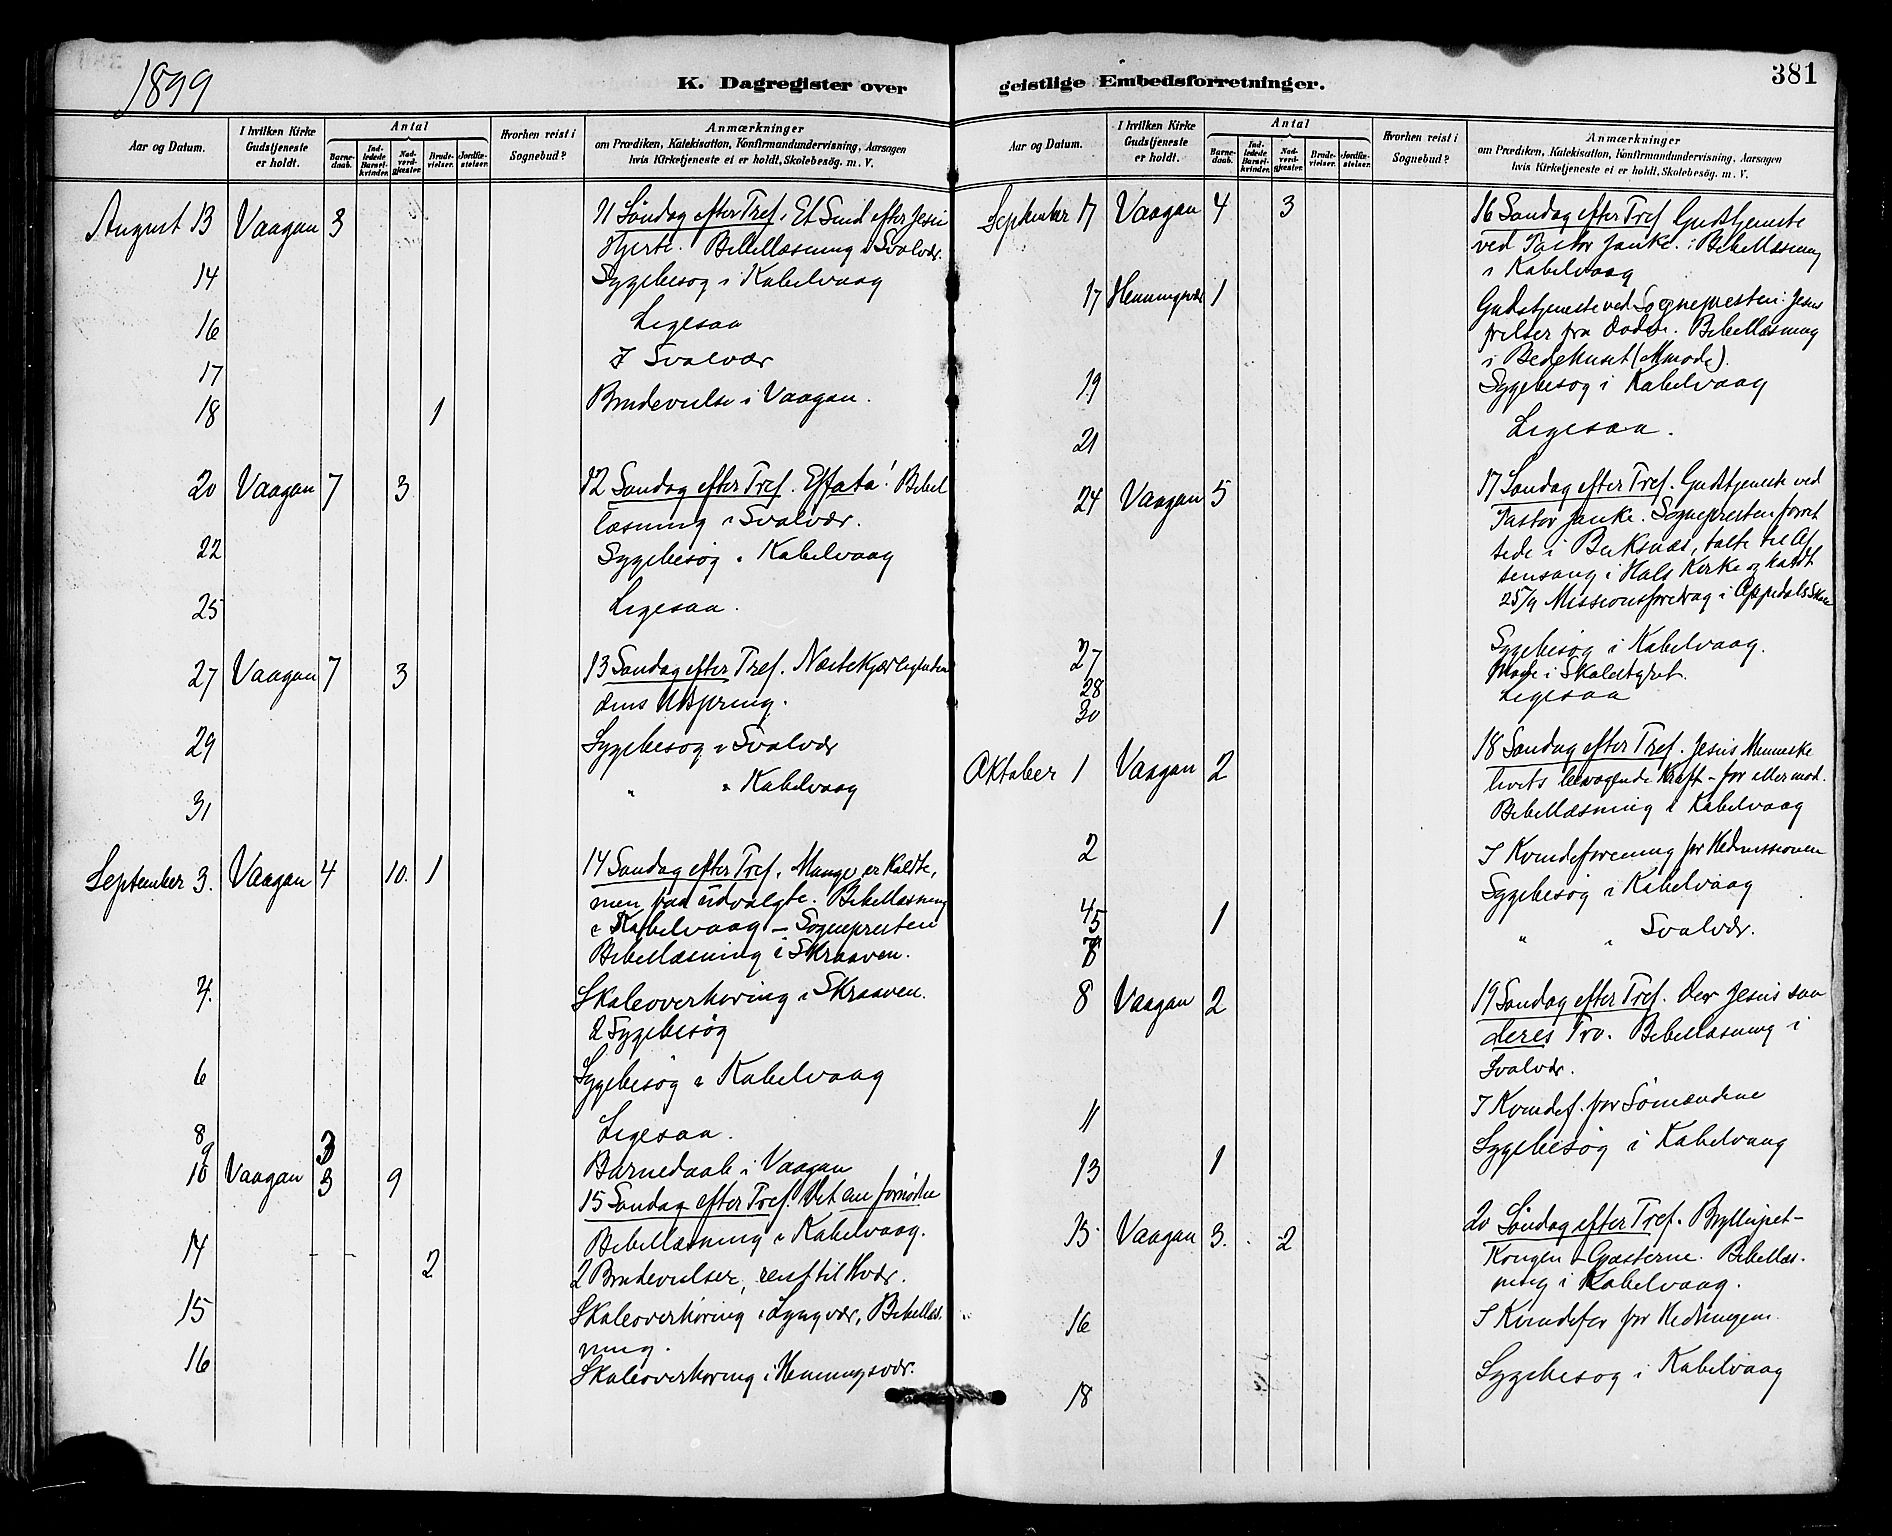 1899
K. Dagregister over
Aar og Datum.
I hvilken Kirke Gudstjeneste er holdt.
Antal
Barnedaab.
Indledede Barselkvinder.
Nadverdgjester.
Brudevielser.
Jordfæstelser.
Hvorhen reist i Sognebud?
Anmærkninger
om Prædiken, Katekisation, Konfirmandundervisning, Aarsagen
hvis Kirketjeneste ei er holdt, Skolebesøg. m. V.
August 13 Vaagan 3 11 Søndag efter Tref. Et Sind efter Jesu
Hjerte. Bibellæsning i Svolvær.
14 Sygebesøg i Kabelvaag
16 Ligesaa
17 I Svolvær
18 1 Brudevielse i Vaagan.
20 Vaagan 7 3 12 Søndag efter Tref. Effata! Bibel
læsning i Svolvær.
22 Sygebesøg i Kabelvaag
25 Ligesaa.
27 Vaagan 7 3 13 Søndag efter Tref. Næstekjærlighe
dens Udspring.
29 Sygebesøg i Svolvær
31 " " Kabelvaag
September 3. Vaagan 4 10. 1 14 Søndag efter Tref. Mange er kaldte,
men faa udvalgte. Bibellæsning
i Kabelvaag – Sognepresten
Bibellæsning i Skraaven.
4. Skoleoverhøring i Skraaven.
2 Sygebesøg
6 Sygebesøg i Kabelvaag
8 Ligesaa.
9 3 Barnedaab i Vaagan
10 Vaagan 3 9 15 Søndag efter Tref. Det ene fornødne
Bibellæsning i Kabelvaag.
14 - - 2 2 Brudevielser, reist til Hvær.
15 Skoleoverhøring i Lyngvær, Bibellæs-
ning.
16 Skoleoverhøring i Henningsvær.
geistlige Embedsforretninger.
381
Aar og Datum.
I hvilken Kirke Gudstjeneste er holdt.
Antal
Barnedaab.
Indledede Barselkvinder.
Nadverdgjester.
Brudevielser.
Jordfæstelser.
Hvorhen reist i Sognebud?
Anmærkninger
om Prædiken, Katekisation, Konfirmandundervisning, Aarsagen
hvis Kirketjeneste ei er holdt, Skolebesøg. m. V.
September 17 Vaagan 4 3 16 Søndag efter Tref. Gudstjeneste
ved Pastor Janke. Bibellæsning
i Kabelvaag
17 Henningsvær 1 Gudstjeneste ved Sognepresten: Jesus
frelser fra Døden. Bibellæsning
i Bedehuset (Mmøde).
19 Sygebesøg i Kabelvaag
21 Ligesaa.
24 Vaagan 5 17 Søndag efter Tref. Gudstjeneste ved
Pastor Janke. Sognepresten forret
tede i Buksnæs, talte til Af
tensang i Hols Kirke og holdt
25/9 Missionsforedrag i Oppdøls Skole
27 Sygebesøg i Kabelvaag.
28 Møde i Skolestyret.
30 Ligesaa
Oktober 1 Vaagan 2 18 Søndag efter Tref. Jesus Menneske
livets bevægende Kraft – for eller mod.
Bibellæsning i Kabelvaag
2 I Kvindeforening for Hedmissionen
4 Sygebesøg i Kabelvaag
5 1
7 " " Svolvær.
8 Vaagan 2 19 Søndag efter Tref. Der Jesus saa
deres Tro. Bibellæsning i
Svolvær.
11 I Kvindef. for Sømændene
13 1 Sygebesøg i Kabelvaag
15 Vaagan 3. 2 20 Søndag efter Tref. Bryllupet –
Kongen – Gjæsterne. Bibellæs-
ning i Kabelvaag.
16 I Kvindefor for Hedningem.
18 Sygebesøg i Kabelvaag